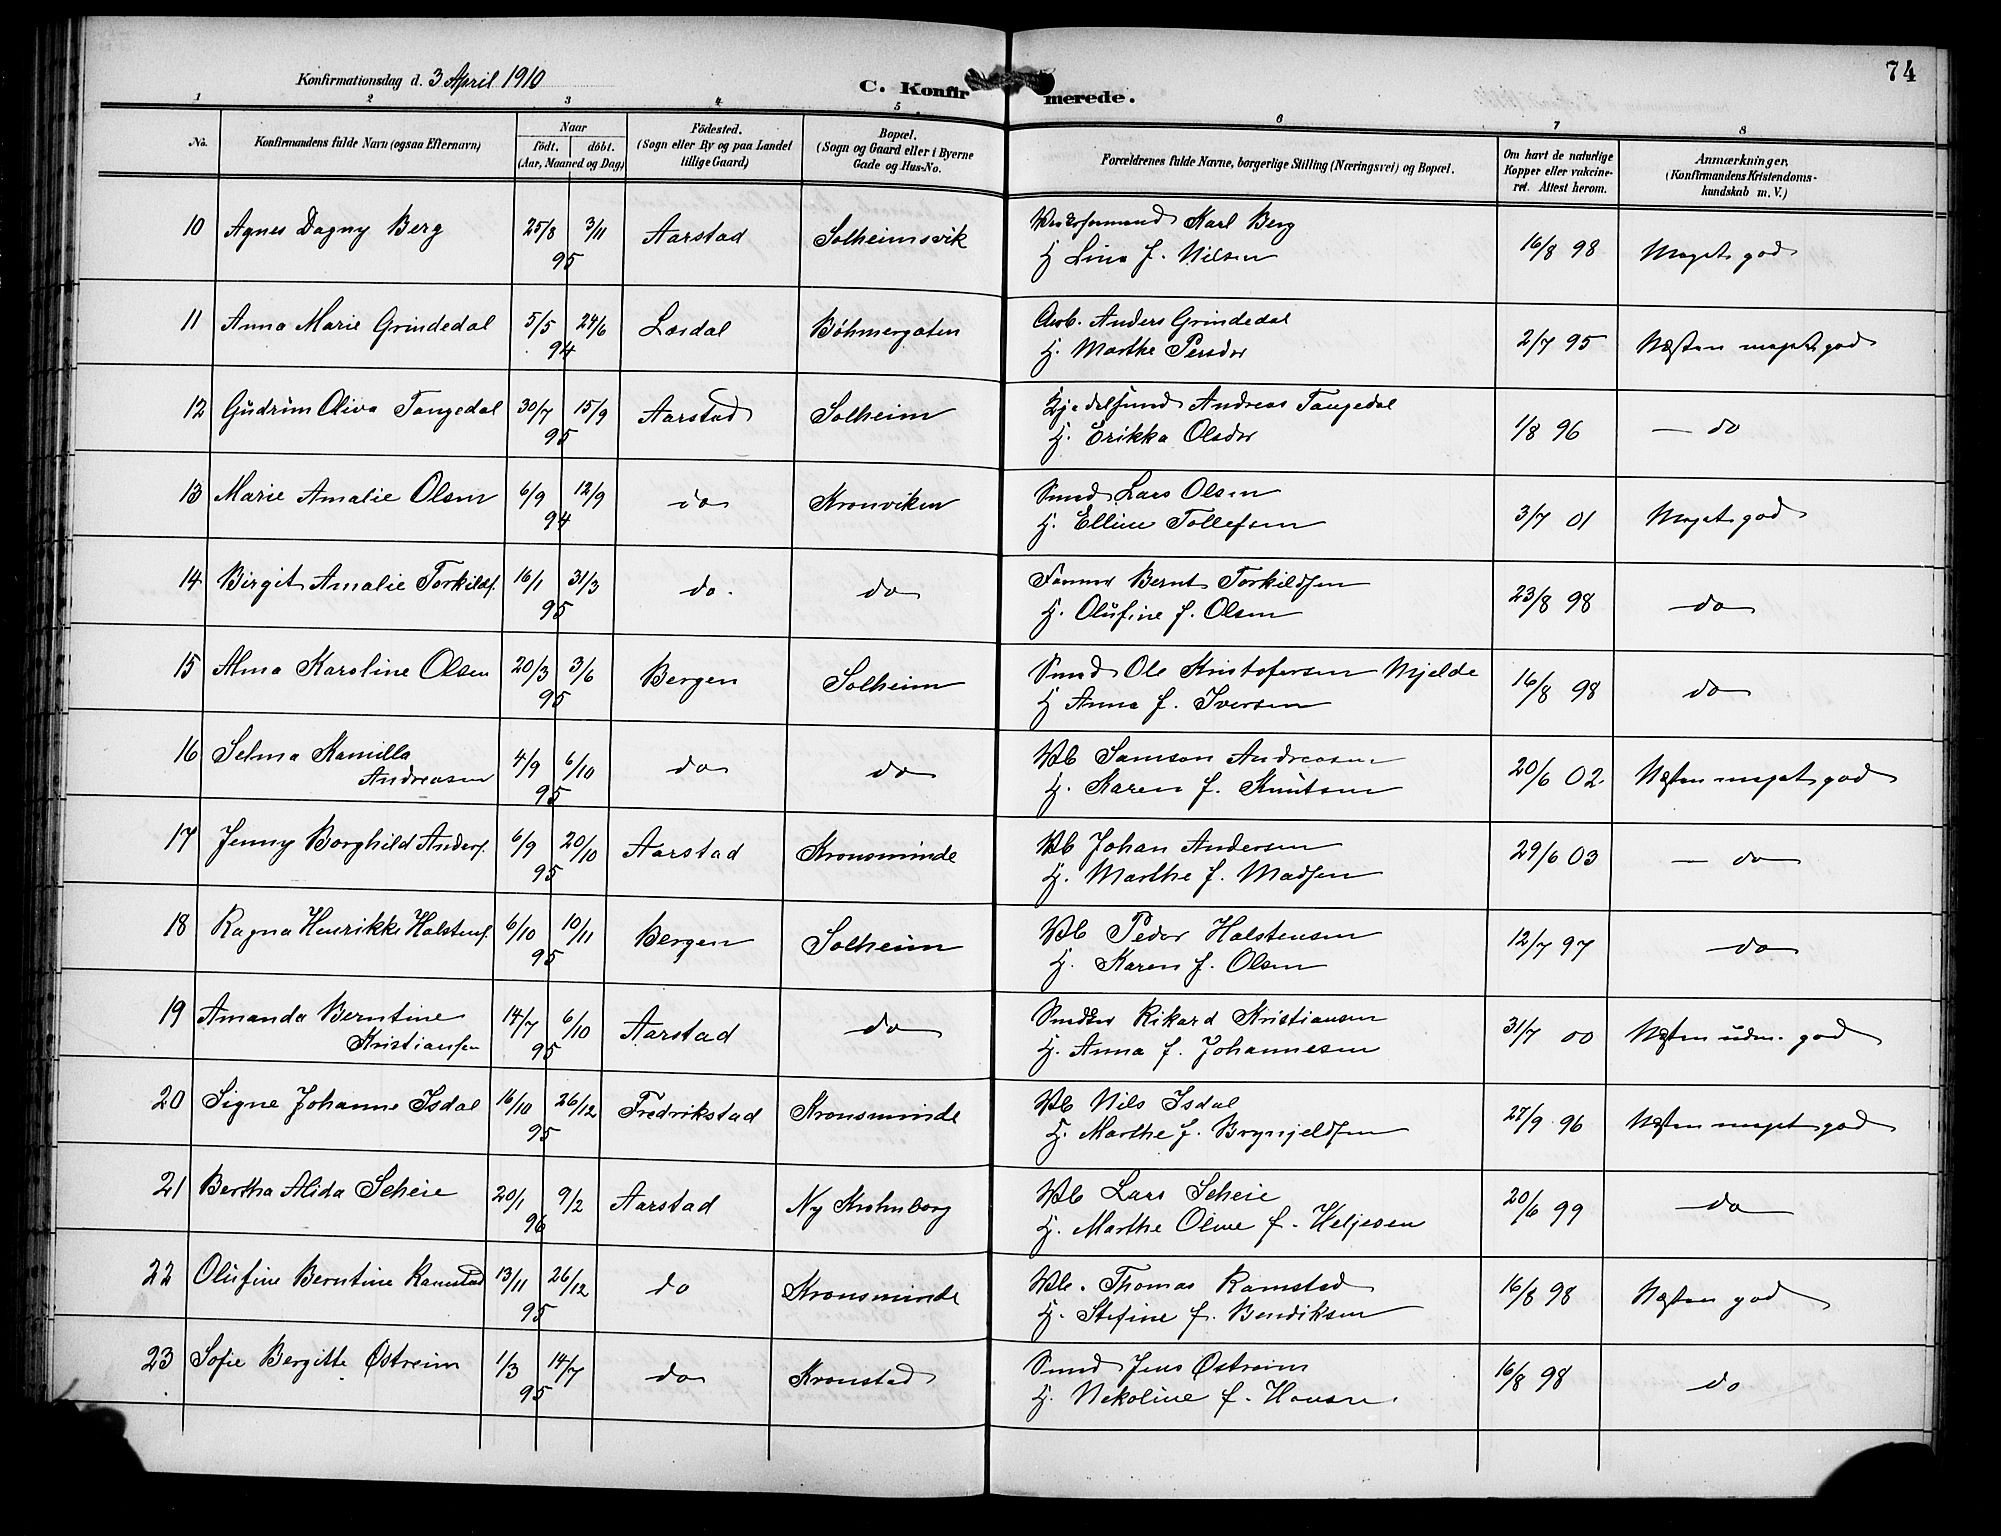 74
Konfirmationsdag d. 3 April 1910
C. Konfirmerede.
1 2 3 4 5 6 7 8
No. Konfirmandens fulde Navn (ogsaa Efternavn) Naar født. døbt. (Aar, Maaned og Dag) Fødested. (Sogn eller By og paa Landet tillige Gaard) Bopæl. (Sogn og Gaard eller i Byerne Gade og Hus-No. Forældrenes fulde Navne, borgerlige Stilling (Næringsvei) og Bopæl. Om havt de naturlige Kopper eller vakcineret. Attest herom. Anmærkninger. (Konfirmandens Kristendomskundskab m. V.)
10 Agnes Dagny Berg 25/8 3/11 95 Aarstad Solheimsvik Karl Berg
H Lina f. Nilsen 16/8 98 Meget god
11 Anna Marie Grindedal 5/5 24/6 94 Løsdal Bøhmergaten Arb. Anders Grindedal
H. Marthe Persdr 2/7 95 Næsten meget god
12 Gudrun Oliva Tangedal 30/7 15/9 95 Aarstad Solheim Kjedelsmed Andreas Tangedal
H. Erikka Olsdr 1/8 96 — do
13 Marie Amalie Olsen 6/9 12/9 94 do Kronviken Smed Lars Olsen
H. Elline Tollefsen 3/7 01 Meget god
14 Birgit Amalie Torkilds. 16/1 31/3 95 do. do Former Bernt Torkildsen
H. Olufine f. Olsen 23/8 98 do
15 Alma Karoline Olsen 20/3 3/6 95 Bergen Solheim Smed Ole Kristofersen Mjelde
H Anna f. Iversen 16/8 98 do
16 Selma Kamilla
Andreasen 4/9 6/10 95 do do Vb Samson Andreasen
H. Karen f. Knutsen 20/6 02. Næsten meget god
17 Jenny Borghild Anders. 6/9 20/10 95 Aarstad Kronsminde Vb Johan Andersen
H. Marthe f. Madsen 29/6 03 — do
18 Ragna Henrikke Halstens. 6/10 10/11 95 Bergen Solheim Vb Peder Halstensen
H. Karen f. Olsen 12/7 97 do
19 Amanda Berntine
Kristiansen 14/7 6/10 95 Aarstad do Rikard Kristiansen
H. Anna f. Johannesen 31/7 00 Næsten udm. god
20 Signe Johanne Isdal 16/10 26/12 95 Fredrikstad Kronsminde Vb Nils Isdal
H. Marthe f. Brynjeldsen 27/9 96 Næsten meget god
21 Bertha Alida Scheie 20/1 9/2 96 Aarstad Ny Krohnborg Vb Lars Scheie
H. Marthe Oline f. Heljesen 20/6 99 do
22 Olufine Berntine Ramstad 13/11 26/12 95 do Kronsminde Vb. Thomas Ramstad
H. Stefine f. Bendiksen 16/8 98 Næsten god
23 Sofie Bergitte Østreim 1/3 14/7 95 do Kronstad Smed Jens Østreim
H. Nekoline f. Hansen. 16/8 98 do